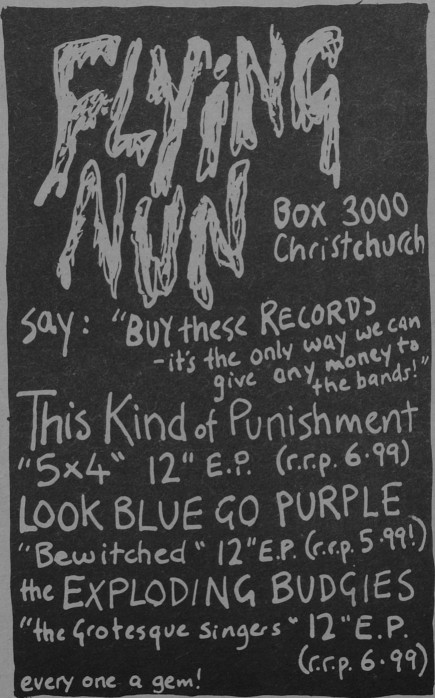 FLYiNG
NUN
Box 3000
Christchurch
say: "BUY these RECORDS
-it's the only way we can
give any money to
the bands!"
This Kind of Punishment
"5x4" 12" E.P. (r.r.p. 6.99)
LOOK BLUE GO PURPLE
"Bewitched" 12" E.P. (r.r.p. 5.99!)
the EXPLODING BUDGIES
"the Grotesque singers" 12" E.P.
(r.r.p. 6.99)
every one a gem!